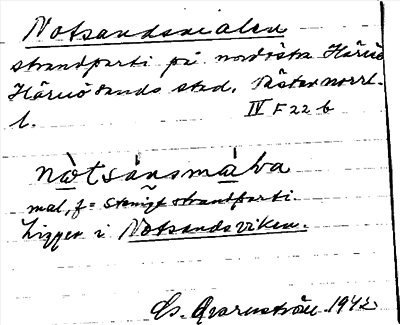 Notsandsmalen
strandparti på nordöstra Härnö
Härnösands stad, Västernorrl.
l. IV F 22 b
nòtsánsmàlva
mal, f = stenigt strandparti.
Ligger i Notsandsviken.
Qvarnström 1942